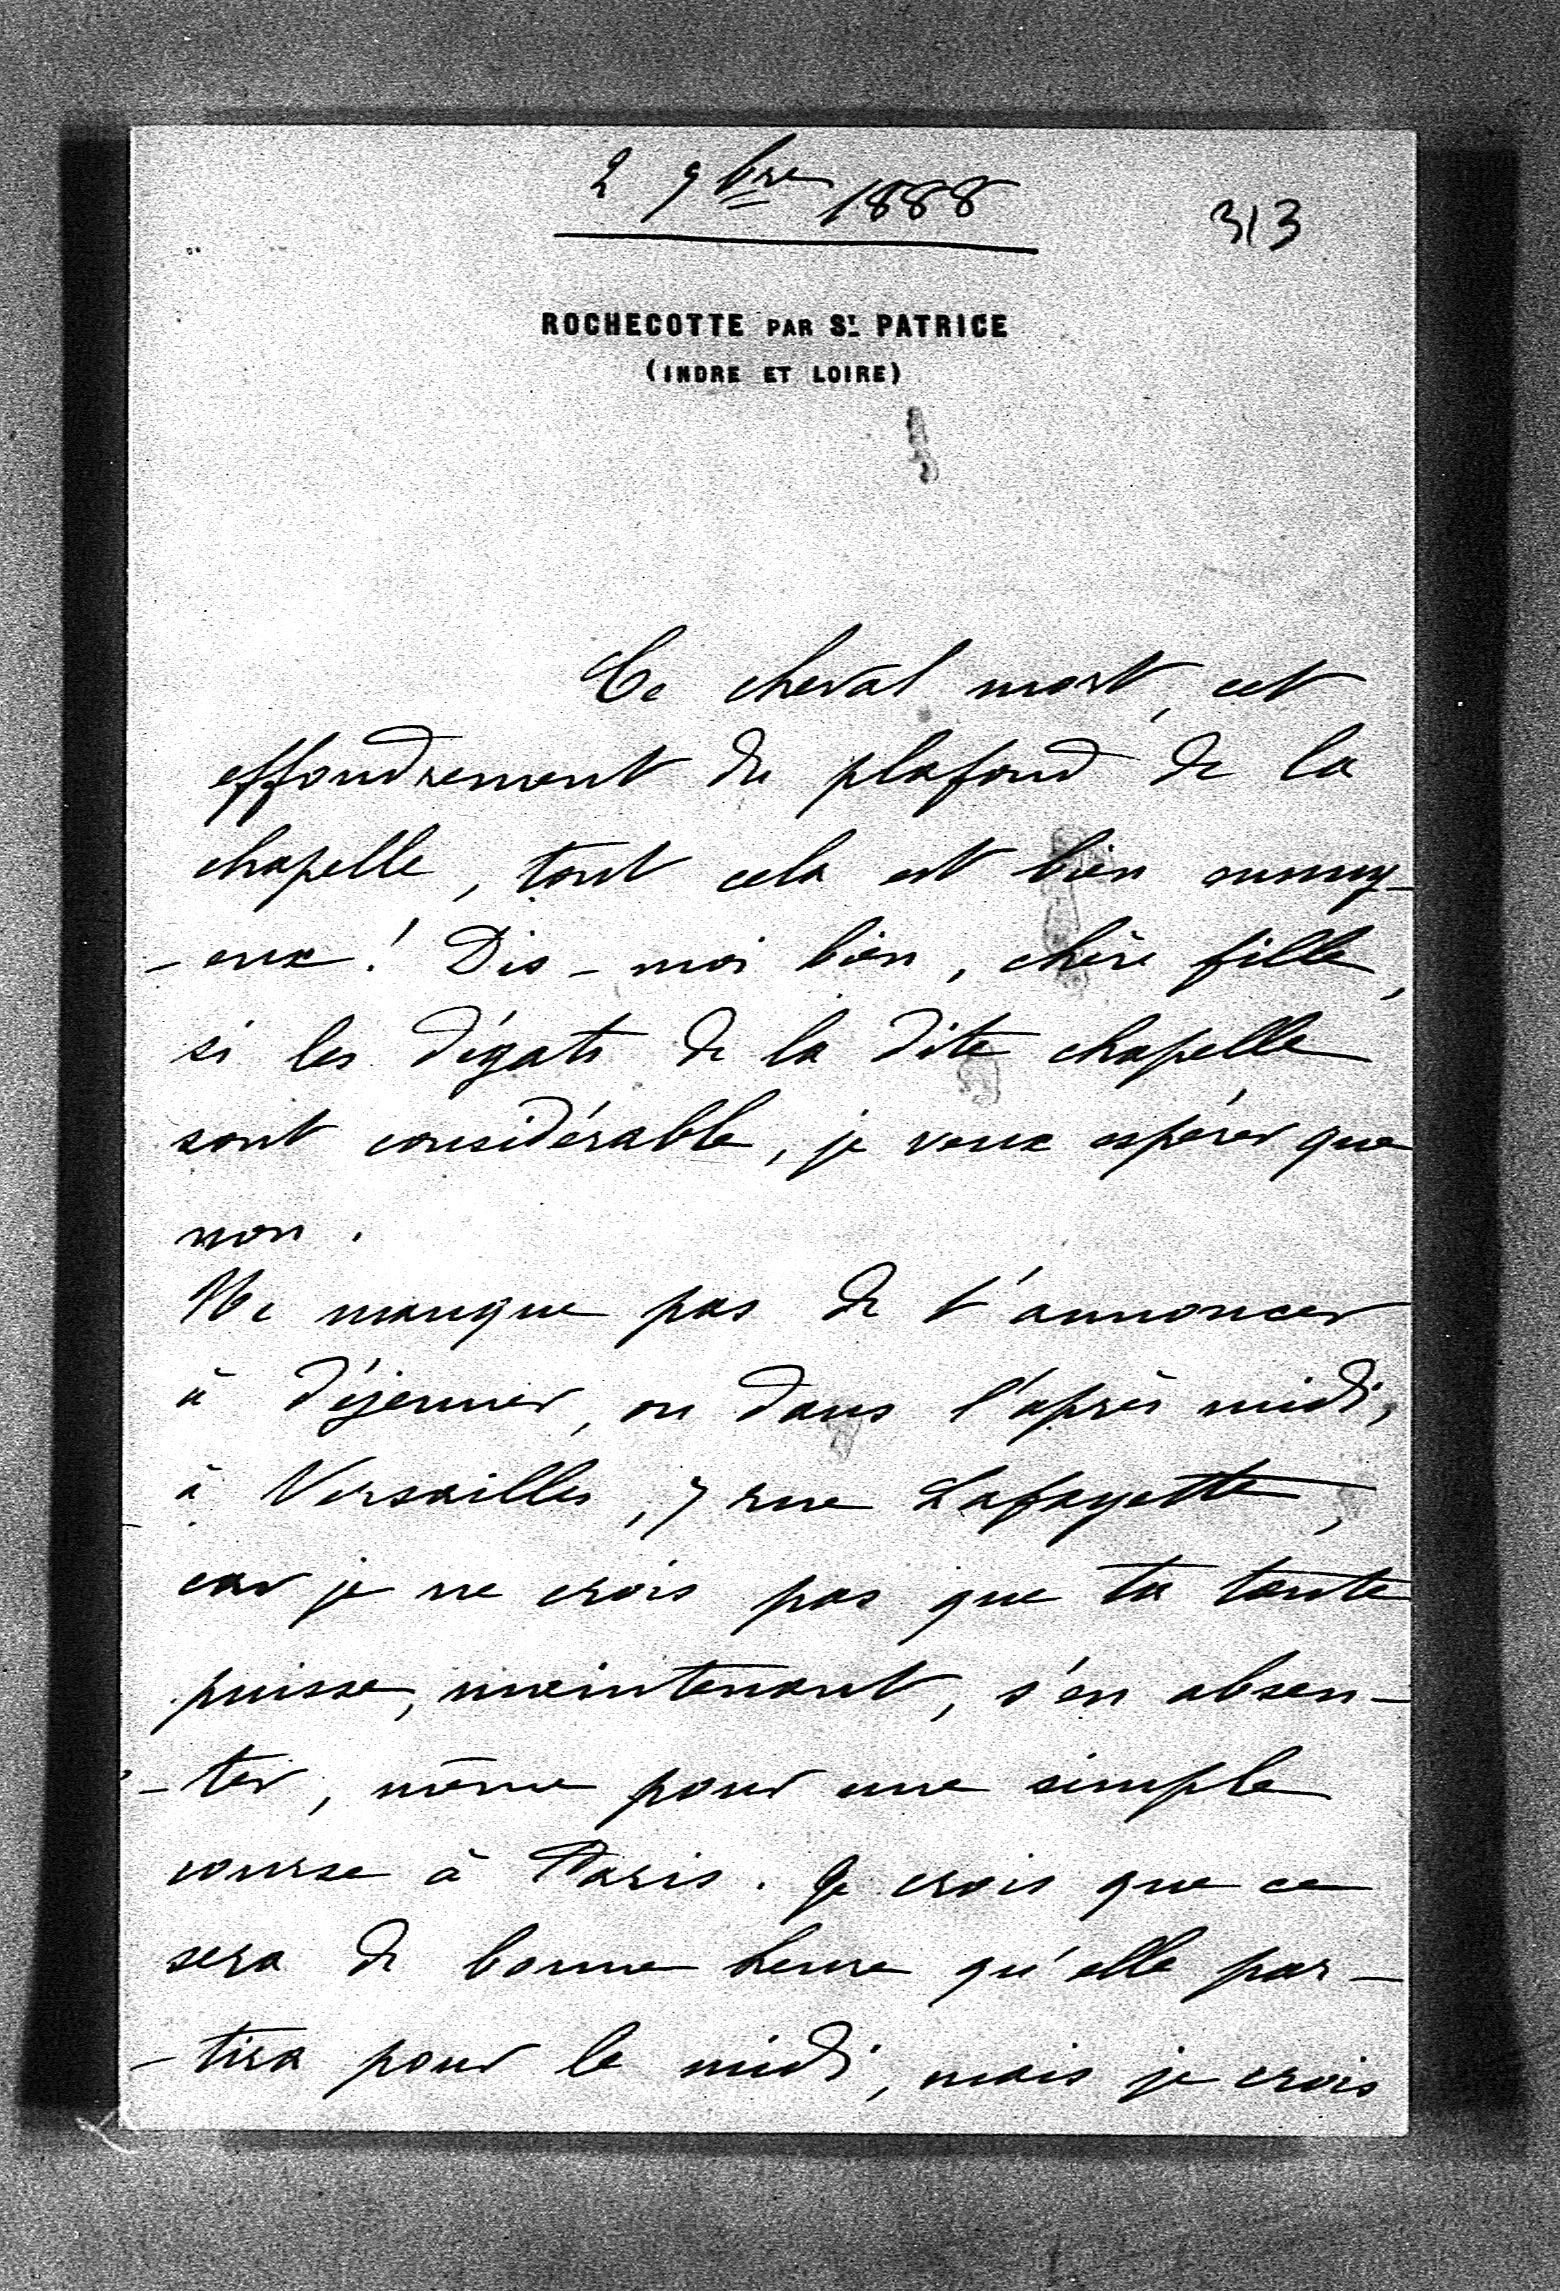 2 9bre 1888
313
ROCHECOTTE PAR ST. PATRICE
(INDRE ET LOIRE)
Ce cheval mort, cet
effondrement du plafond de la
chapelle, tout cela est bien ennuy-
-eux ! Dis-moi bien, chère fille,
si les dégats de la dite chapelle
sont considérable, je veux espérer que
non.
Ne manque pas de t'annoncer
à déjeuner, ou dans l'après midi,
à Versailles, 7 rue Lafayette,
car je ne crois pas que ta tante
puisse, maintenant, s'en absen-
-ter, même pour une simple
course à Paris. Je crois que ce
sera de bonne heure qu'elle par-
-tira pour le midi, mais je crois